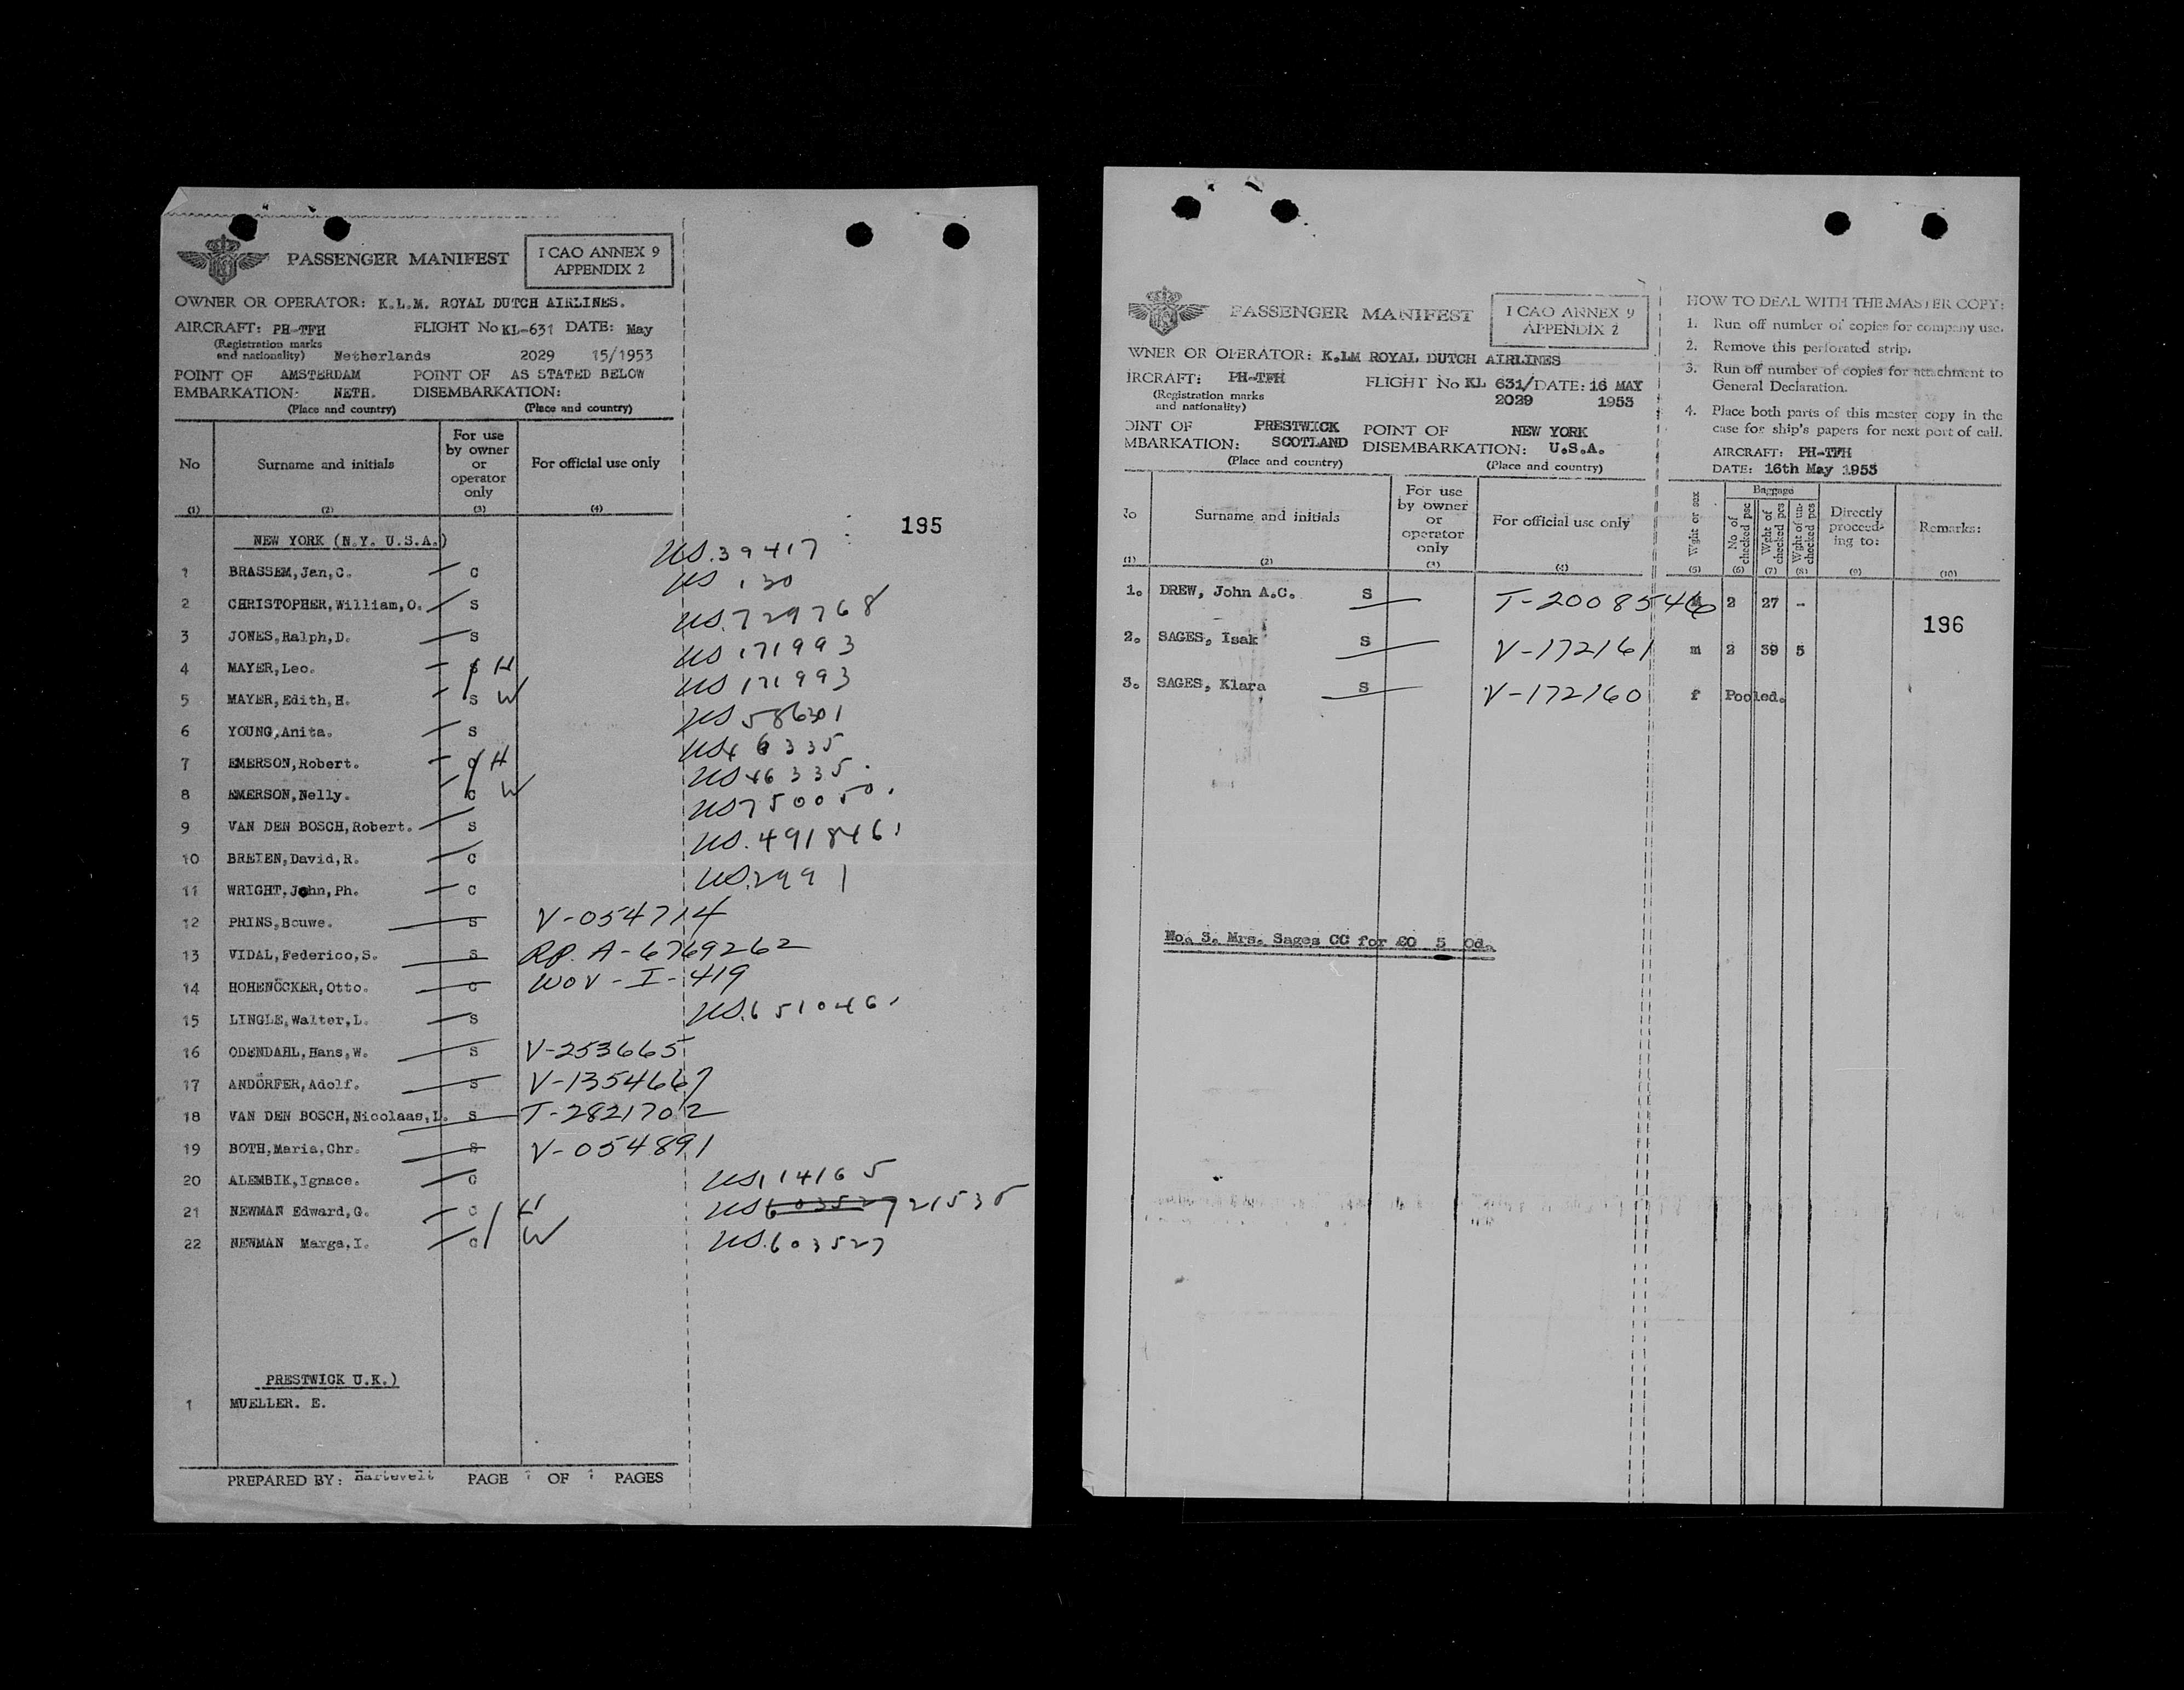 PASSENGER MANIFEST
I CAO ANNEX 9
APPENDIX 2
OWNER OR OPERATOR: K.L.M. ROYAL DUTCH AIRLINES.
AIRCRAFT: PH-TFH FLIGHT No KL-631 DATE: May
(Registration marks
and nationality) Netherlands 2029 15/1953
POINT OF AMSTERDAM POINT OF AS STATED BELOW
EMBARKATION: NETH. DISEMBARKATION:
(Place and country) (Place and country)
No Surname and initials For use by owner or operator only For official use only
(1) (2) (3) (4)
195
NEW YORK (N.Y. U.S.A.)
1 BRASSEM, Jan, C. C US.39417
2 CHRISTOPHER, William, O. S US 130
3 JONES, Ralph, D. S US.729768
4 MAYER, Leo. S H US 171993
5 MAYER, Edith, H. S W US 171993
6 YOUNG, Anita. S US 586301
7 EMERSON, Robert. C H US 46335
8 EMERSON, Nelly. C W US 46335.
9 VAN DEN BOSCH, Robert. S US 750050.
10 BREIEN, David, R. C US. 491846
11 WRIGHT, John, Ph. C US.2991
12 PRINS, Bouwe. S V-054714
13 VIDAL, Federico, S. S RP. A-6769262
14 HOHENÖCKER, Otto. C WOV-I-419
15 LINGLE, Walter, L. S US.651046
16 ODENDAHL, Hans, W. S V-253665
17 ANDÖRFER, Adolf. S V-1354667
18 VAN DEN BOSCH, Nicolaas, L. S T-2821702
19 BOTH, Maria, Chr. S V-054891
20 ALEMBIK, Ignace. C US 114165
21 NEWMAN Edward, G. C H US 603527 721535
22 NEWMAN Marga, I. C W US.603527
PRESTWICK U.K.)
1 MUELLER. E.
PREPARED BY: Hartevelt PAGE 1 OF 1 PAGES
PASSENGER MANIFEST
I CAO ANNEX 9
APPENDIX 2
WNER OR OPERATOR: K.LM ROYAL DUTCH AIRLINES
IRCRAFT: PH-TFH FLIGHT No KL 631/ DATE: 16 MAY
(Registration marks
and nationality) 2029 1953
OINT OF PRESTWICK POINT OF NEW YORK
MBARKATION: SCOTLAND DISEMBARKATION: U.S.A.
(Place and country) (Place and country)
HOW TO DEAL WITH THE MASTER COPY:
1. Run off number of copies for company use.
2. Remove this perforated strip.
3. Run off number of copies for attachment to
General Declaration.
4. Place both parts of this master copy in the
case for ship's papers for next port of call.
AIRCRAFT: PH-TFH
DATE: 16th May 1953
No Surname and initials For use by owner or operator only For official use only Wght or sex Baggage No of checked psc Wght of checked pcs Wght of un-checked pcs Directly proceed-ing to: Remarks:
(1) (2) (3) (4) (5) (6) (7) (8) (9) (10)
1. DREW, John A.C. S T-2008546 M 2 27 -
196
2. SAGES, Isak S V-172161 m 2 39 5
3. SAGES, Klara S V-172160 f Pooled.
No. 3. Mrs. Sages CC for £0 5 0d.